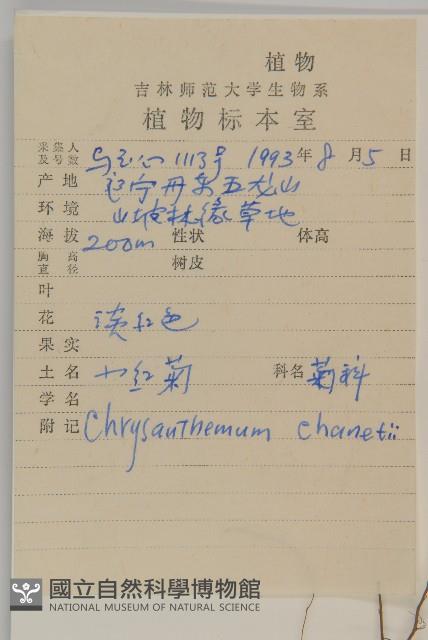 植物
吉林师范大学生物系
植物标本室
采集人及号数 1113号 1993年8月5日
产地 辽宁丹东五龙山
环境 山坡林缘草地
海拔 200m 性状 体高
胸高直径 树皮
叶
花 淡红色
果实
土名 小红菊 科名 菊科
学名
附记 Chrysanthemum chanetii
國立自然科學博物館
NATIONAL MUSEUM OF NATURAL SCIENCE